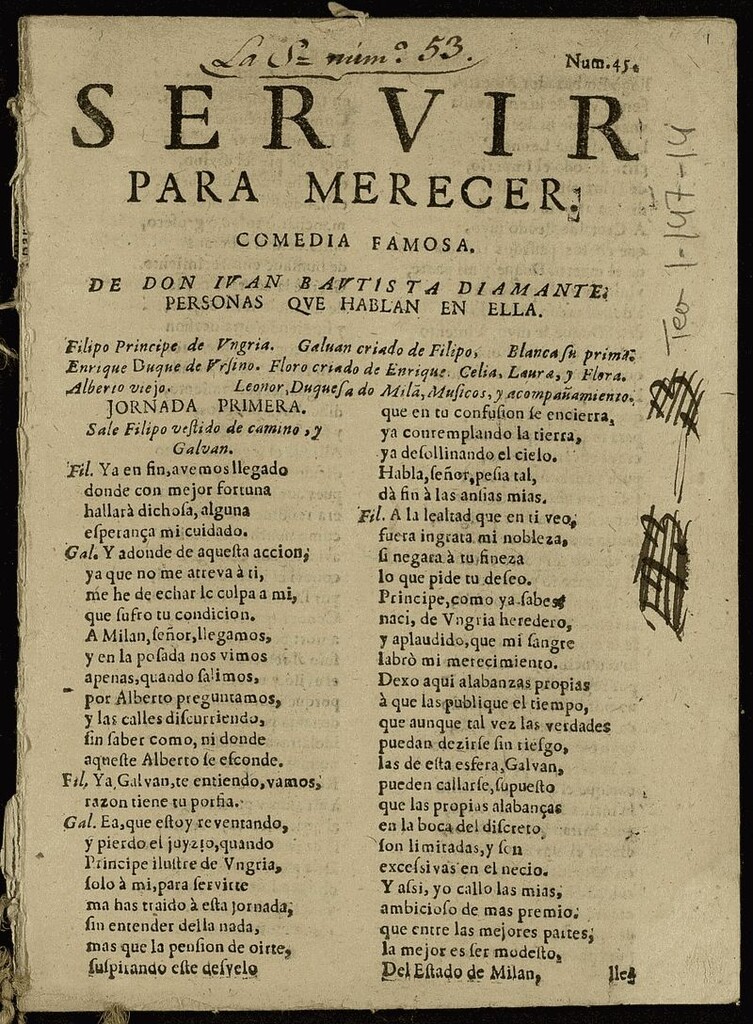 La S.ª núm.º 53.
Num. 45.
SERVIR
PARA MERECER.
COMEDIA FAMOSA.
DE DON IVAN BAVTISTA DIAMANTE.
PERSONAS QVE HABLAN EN ELLA.
Filipo Principe de Vngria. Galuan criado de Filipo, Blanca ſu prima.
Enrique Duque de Vrſino. Floro criado de Enrique. Celia, Laura, y Flora.
Alberto viejo. Leonor, Duqueſa do Milã, Muſicos, y acompañamiento.
JORNADA PRIMERA.
Sale Filipo veſtido de camino, y
Galvan.
Fil. Ya en fin, avemos llegado
donde con mejor fortuna
hallarà dichoſa, alguna
eſperança mi cuidado.
Gal. Y adonde de aqueſta accion,
ya que no me atreva à ti,
me he de echar le culpa a mi,
que ſufro tu condicion.
A Milan, ſeñor, llegamos,
y en la poſada nos vimos
apenas, quando ſalimos,
por Alberto preguntamos,
y las calles diſcurriendo,
ſin ſaber como, ni donde
aqueſte Alberto ſe eſconde.
Fil, Ya, Galvan, te entiendo, vamos,
razon tiene tu porfia.
Gal. Ea, que eſtoy reventando,
y pierdo el juyzio, quando
Principe iluſtre de Vngria,
ſolo à mi, para ſervirte
ma has traido à eſta jornada,
ſin entender della nada,
mas que la penſion de oirte,
ſuſpirando eſte deſvelo
que en tu confuſion ſe encierra,
ya contemplando la tierra,
ya deſollinando el cielo.
Habla, ſeñor, peſia tal,
dà fin à las anſias mias.
Fil. A la lealtad que en ti veo,
fuera ingrata mi nobleza,
ſi negara à tu fineza
lo que pide tu deſeo.
Principe, como ya ſabes
naci, de Vngria heredero,
y aplaudido, que mi ſangre
labrò mi merecimiento.
Dexo aqui alabanzas propias
à que las publique el tiempo,
que aunque tal vez las verdades
puedan dezirſe ſin rieſgo,
las de eſta esfera, Galvan,
pueden callarſe, ſupueſto
que las propias alabanças
en la boca del diſcreto
ſon limitadas, y ſon
exceſsivas en el necio.
Y aſsi, yo callo las mias,
ambicioſo de mas premio,
que entre las mejores partes,
la mejor es ſer modeſto,
Del Eſtado de Milan,
lle-
Teo 1-147-14
1